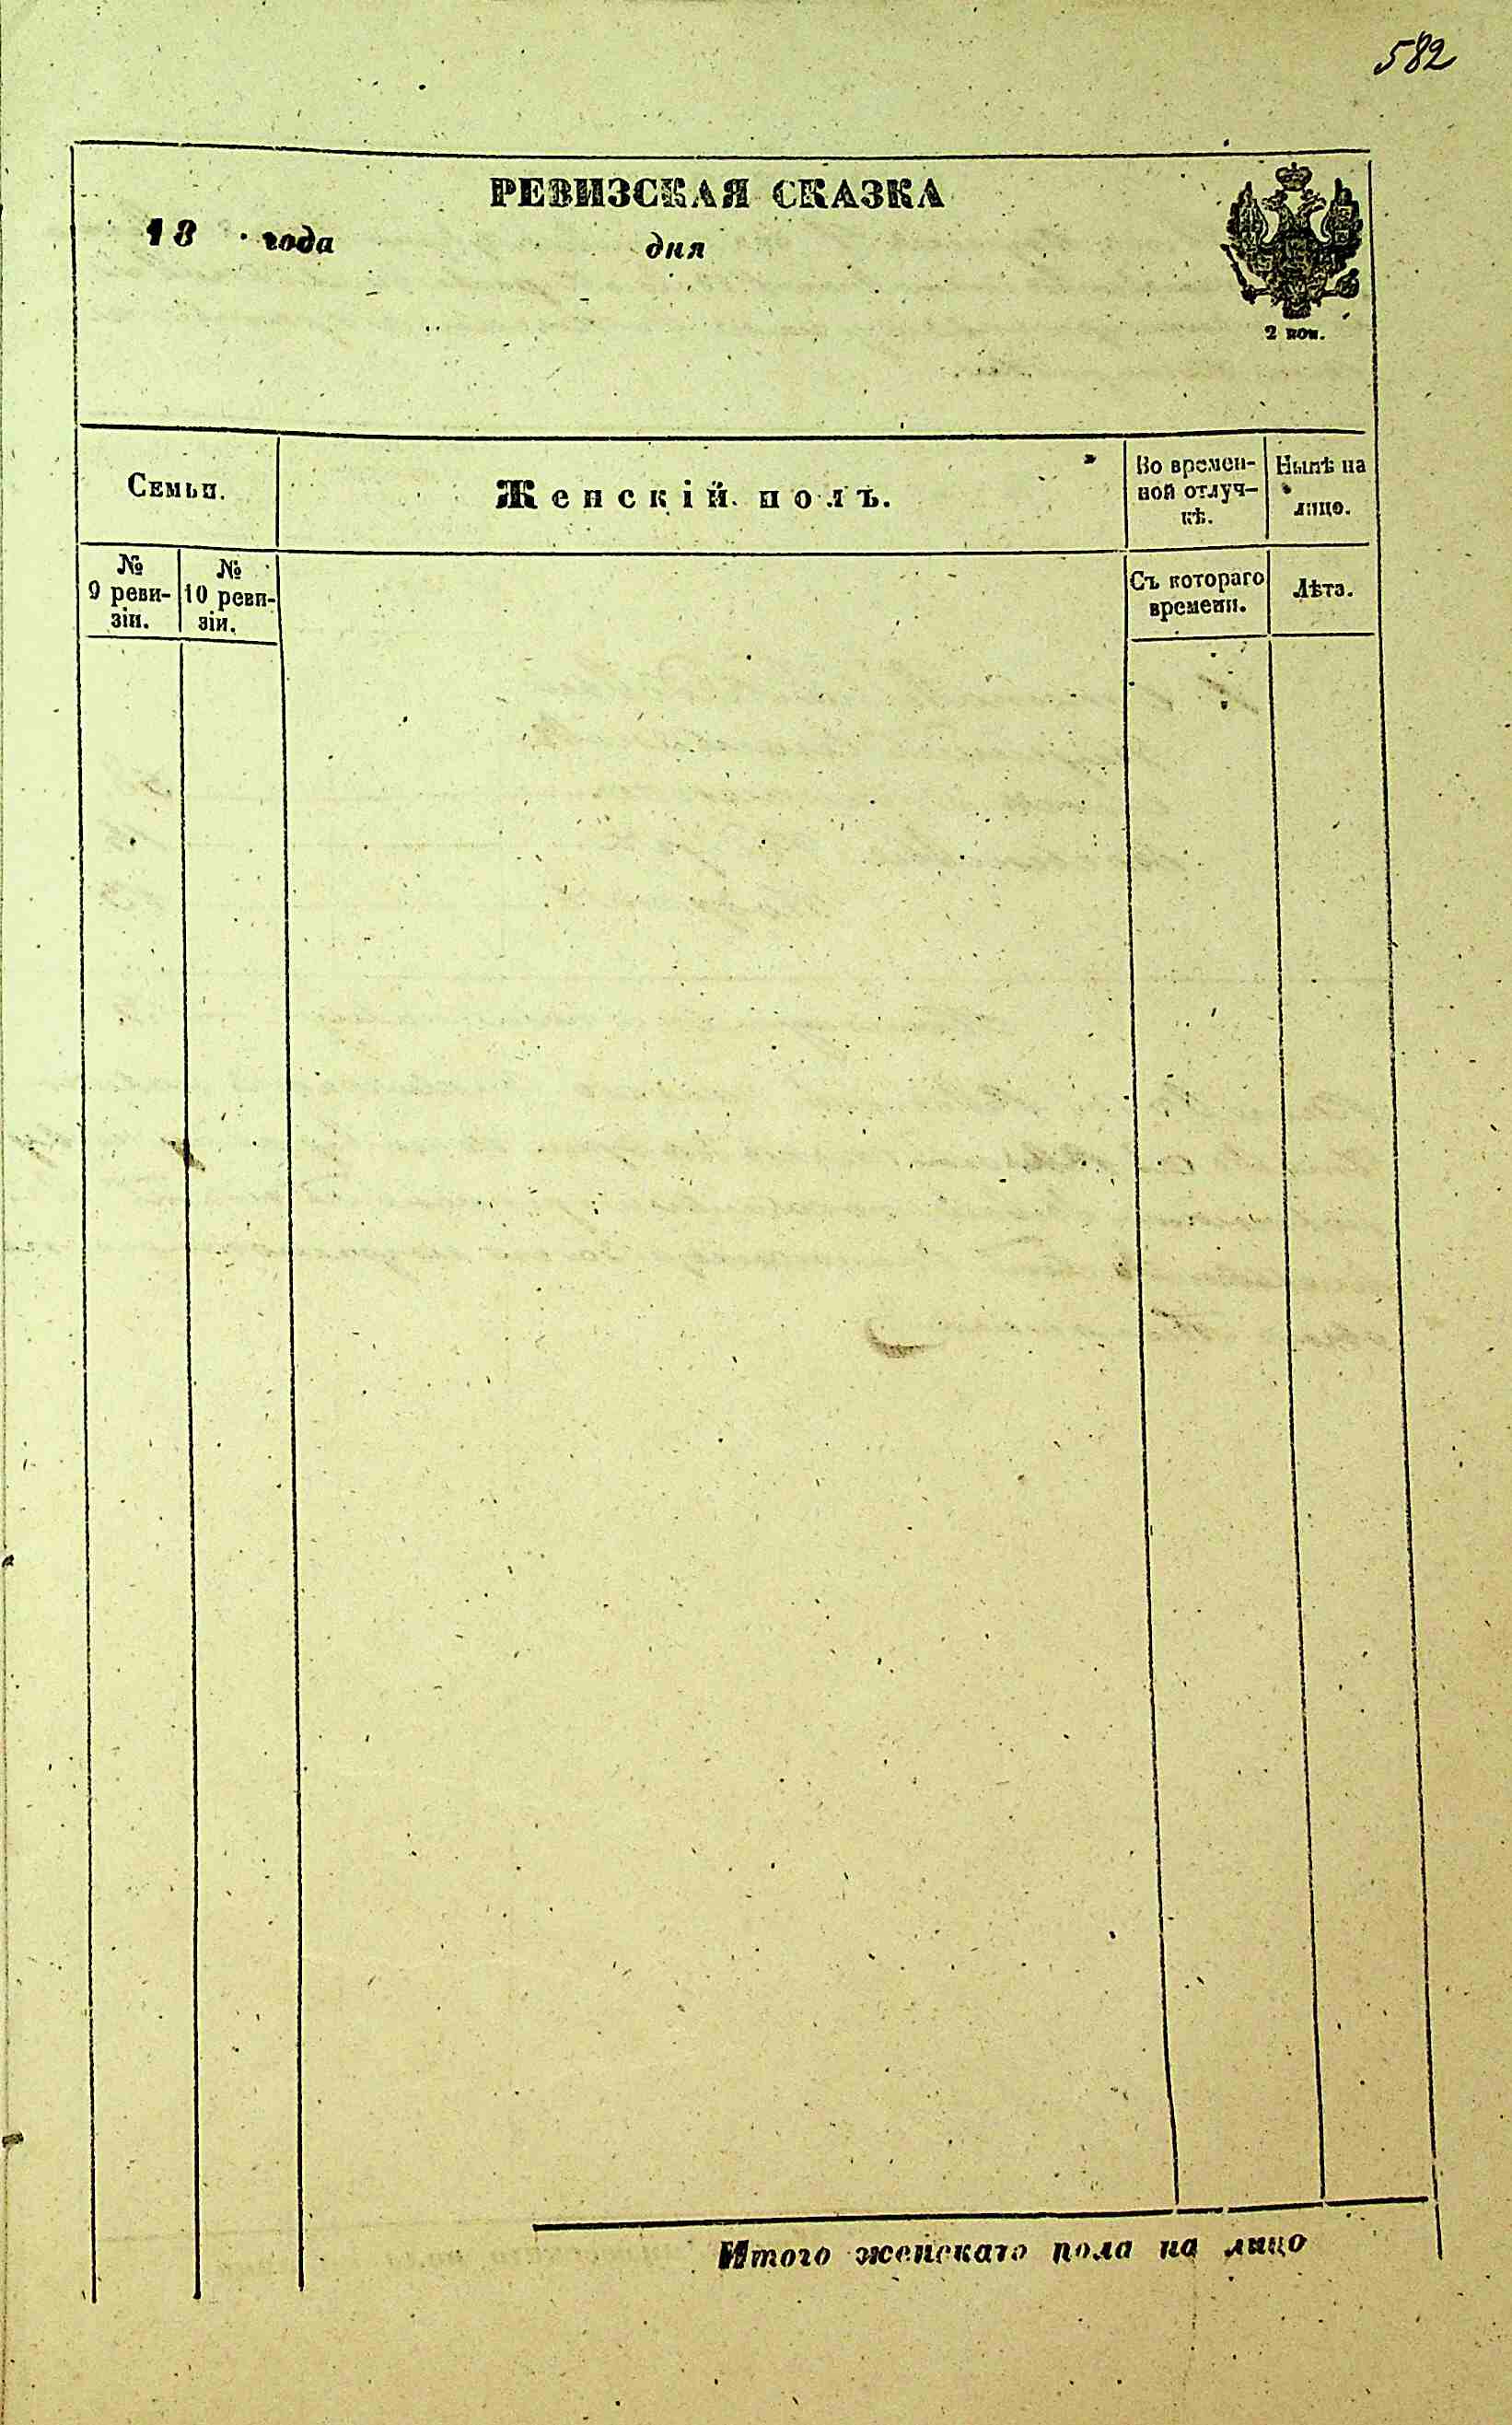 582
РЕВИЗСКАЯ СКАЗКА
18 года дня
2 коп.
Семьи.
Женскій полъ.
Во времен-
ной отлуч-
кѣ.
Нынѣ на
лицо.
№
9 реви-
зіи.
№
10 реви-
зіи.
Съ котораго
времени.
Лѣта.
Итого женскаго пола на лицо